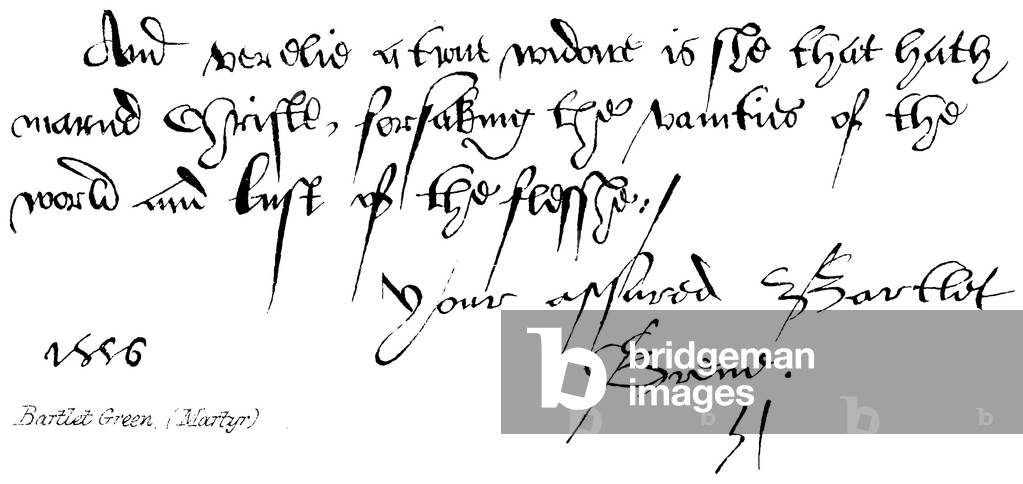 And verelie a trwe widowe is she that hath
maried Christe, forsaking the vanities of the
world and lust of the flesshe:
Your assured Bartlet
Grene.
1556
Bartlet Green, (Martyr)
bridgeman
images